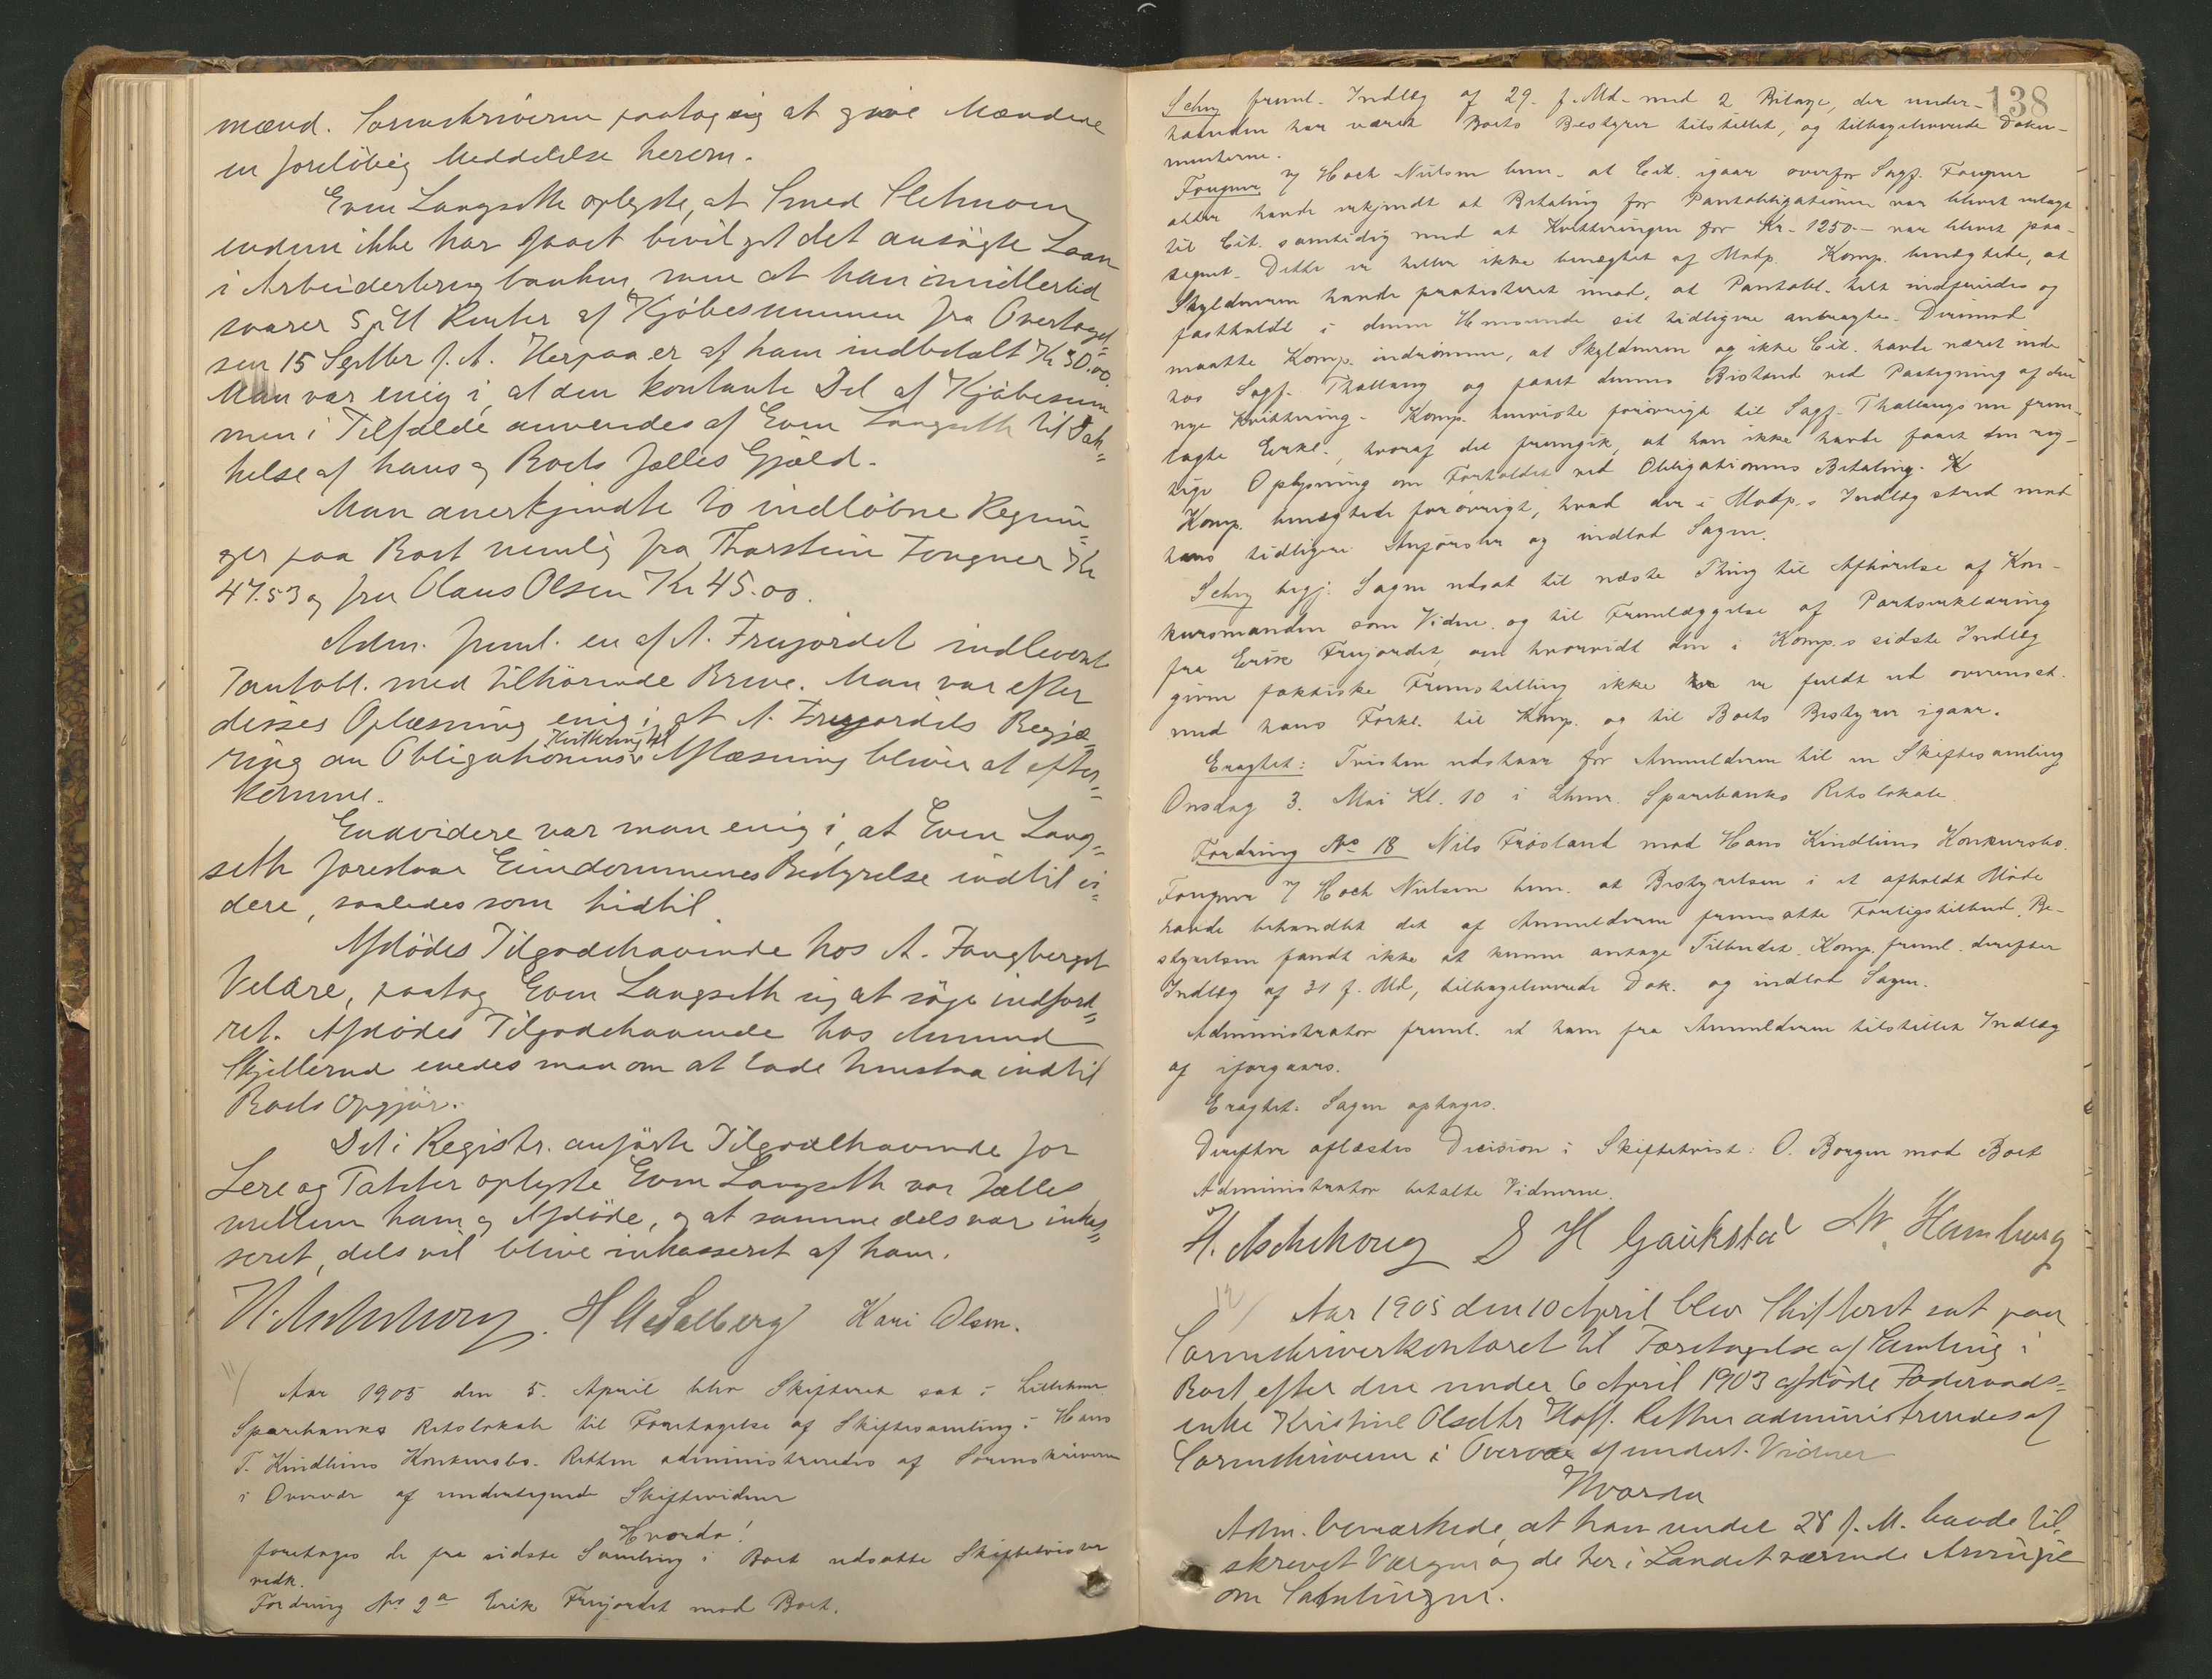 mænd. Sorenskriveren paatog sig at give Mændene
en foreløbig Meddelelse herom.
Even Langseth oplyste, at Smed Sletmoen
endnu ikke har faaet bevilget det ansøgte Laan
i Arbeiderbrugbanken, men at han imidlertid
svarer 5 pCt Renter af Kjøbesummen fra Overtagel-
sen 15 Septbr f. A. Herpaa er af ham indbetalt Kr 50.00.
Man var enig i, at den kontante Del af Kjøbesum
men i Tilfælde anvendes af Even Langseth til Dæk=
kelse af hans og Boets fælles Gjæld.
Man anerkjendte to indløbne Regnin=
ger paa Boet nemlig fra Thorstein Fougner Kr
47.53 og fra Olaus Olsen Kr 45.00.
Adm. freml. en af A. Frujordet indleveret
Pantobl. med tilhørende Breve. Man var efter
disses Oplæsning enig i, at A. Frujordets Begjæ=
ring om Obligationens Kvittering til Aflæsning bliver at efter=
komme.
Endvidere var man enig i, at Even Lang=
seth forestaar Eiendommenes Bestyrelse indtil vi=
dere, saaledes som hidtil.
Afdødes Tilgodehavende hos A. Fangberget
Veldre, paatog Even Langseth sig at søge indford=
ret. Afdødes Tilgodehavende hos Amund
Skjellerud enedes man om at lade henstaa indtil
Boets Opgjør.
Det i Registr. anførte Tilgodehavende for
Lere og Tatter oplyste Even Langseth var fælles
mellem ham og Afdøde, og at samme dels var inkas=
seret, dels vil blive inkasseret af ham.
H. Aschehoug. H A Salberg Kari Olsen.
11/ Aar 1905 den 5. April blev Skifteret sat i Lillehmr.
Sparebanks Retslokale til Foretagelse af Skiftesamling i Hans
T. Kindlims Konkursbo. Retten administreredes af Sorenskriveren
i Overvær af undertegnede Skiftevidner
Hvorda!
foretoges de fra sidste Samling i Boet udsatte Skiftetvister
vedk.
Fordring No 2a Erik Frujordet mod Boet.
138
Schey freml. Indlæg af 29. f. Md. med 2 Bilage, der under-
haanden har været Boets Bestyrer tilstillet, og tilbageleverede Doku-
menterne.
Fougner v/ Hoch Nielsen bem. at Cit. igaar overfor Sagf. Fougner
atter havde erkjendt at Betaling for Pantobligationen var blevet erlagt
til Cit. samtidig med at Kvitteringen for Kr. 1250.– var blevet paa-
tegnet. Dette er heller ikke benegtet af Modp. Komp. benegtede, at
Skyldneren havde protesteret imod, at Pantobl. helt indfriedes og
fastholdt i denne Henseende sit tidligere anbragte. Derimod
maatte Komp. indrømme, at Skyldneren og ikke Cit. havde været inde
hos Sagf. Thallaug og faaet dennes Bistand ved Paategning af den
nye Kvittering. Komp. henviste forøvrigt til Sagf. Thallaugs nu frem-
lagte Erkl., hvoraf det fremgik, at han ikke havde faaet den rig-
tige Oplysning om Forholdet ved Obligationens Betaling.
Komp. benegtede forøvrigt, hvad der i Modp.s Indlæg stred mod
hans tidligere Anførsler og indlod Sagen.
Schey begj. Sagen udsat til næste Thing til Afhørelse af Kon-
kursmanden som Vidne og til Fremlæggelse af Partserklæring
fra Erik Frujordet, om hvorvidt den i Komp.s sidste Indlæg
givne faktiske Fremstilling ikke er fuldt ud overensst.
med hans Forkl. til Komp. og til Boets Bestyrer igaar.
Eragtet: Tvisten udstaar for Anmelderen til en Skiftesamling
Onsdag 3. Mai Kl. 10 i Lhmr. Sparebanks Retslokale
Fordring No 18 Nils Frøsland mod Hans Kindlims Konkursbo.
Fougner v/ Hoch Nielsen bem. at Bestyrelsen i et afholdt Møde
havde behandlet det af Anmelderen fremsatte Forligstilbud. Be-
styrelsen fandt ikke at kunne antage Tilbudet. Komp. freml. derefter
Indlæg af 31 f. Md, tilbageleverede Dok. og indlod Sagen.
Administrator freml. et ham fra Anmelderen tilstillet Indlæg
af iforgaars.
Eragtet: Sagen optages.
Derefter oplæstes Decision i Skiftetvist: O. Borgen mod Boet
Administrator betalte Vidnerne.
H. Aschehoug S H Gaukstad M. Hamburg
12/ Aar 1905 den 10 April blev Skifteret sat paa
Sorenskriverkontoret til Foretagelse af Samling i
Boet efter den under 6 April 1903 afdøde Føderaads=
enke Kristine Olsdtr Hoff. Retten administreredes af
Sorenskriveren i Overvær af undert. Vidner
Hvorda
Adm. bemærkede, at han under 28 f. M. havde til=
skrevet Værgen og de her i Landet værende Arvinger
om Samlingen.